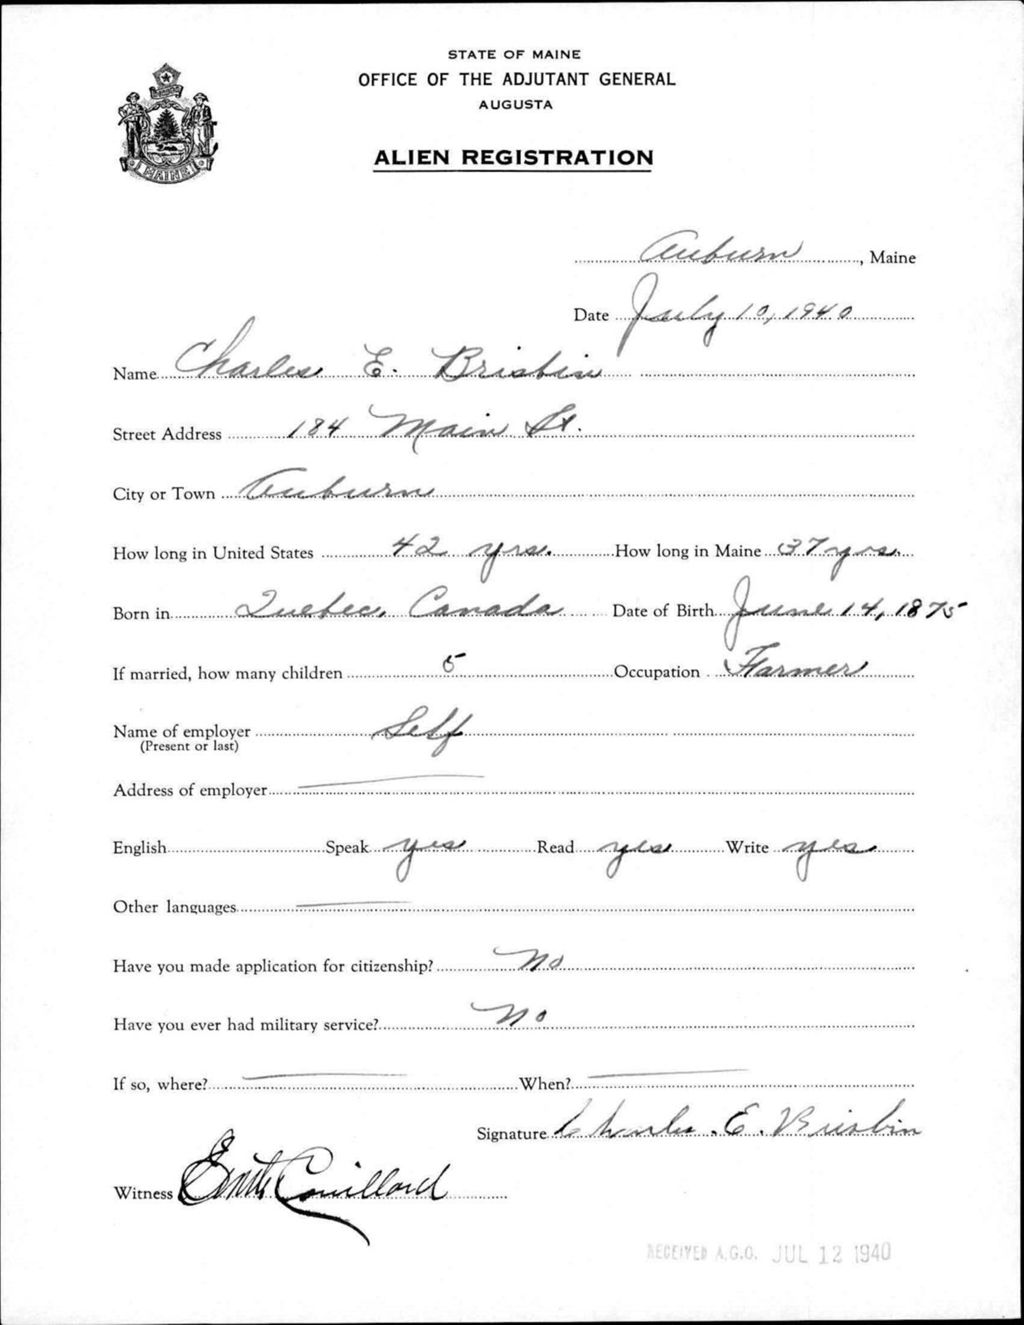 STATE OF MAINE
OFFICE OF THE ADJUTANT GENERAL
AUGUSTA
ALIEN REGISTRATION
MAINE
Auburn, Maine
Date July 10, 1940
Name Charles E. Brisbin
Street Address 184 Main St.
City or Town Auburn
How long in United States 42 yrs. How long in Maine 37 yrs.
Born in Quebec, Canada Date of Birth June 14, 1875
If married, how many children 5 Occupation Farmer
Name of employer Self
(Present or last)
Address of employer
English Speak yes Read yes Write yes
Other languages
Have you made application for citizenship? No
Have you ever had military service? No
If so, where? When?
Signature Charles. E. Brisbin
Witness Couillard
RECEIVED A.G.O. JUL 12 1940